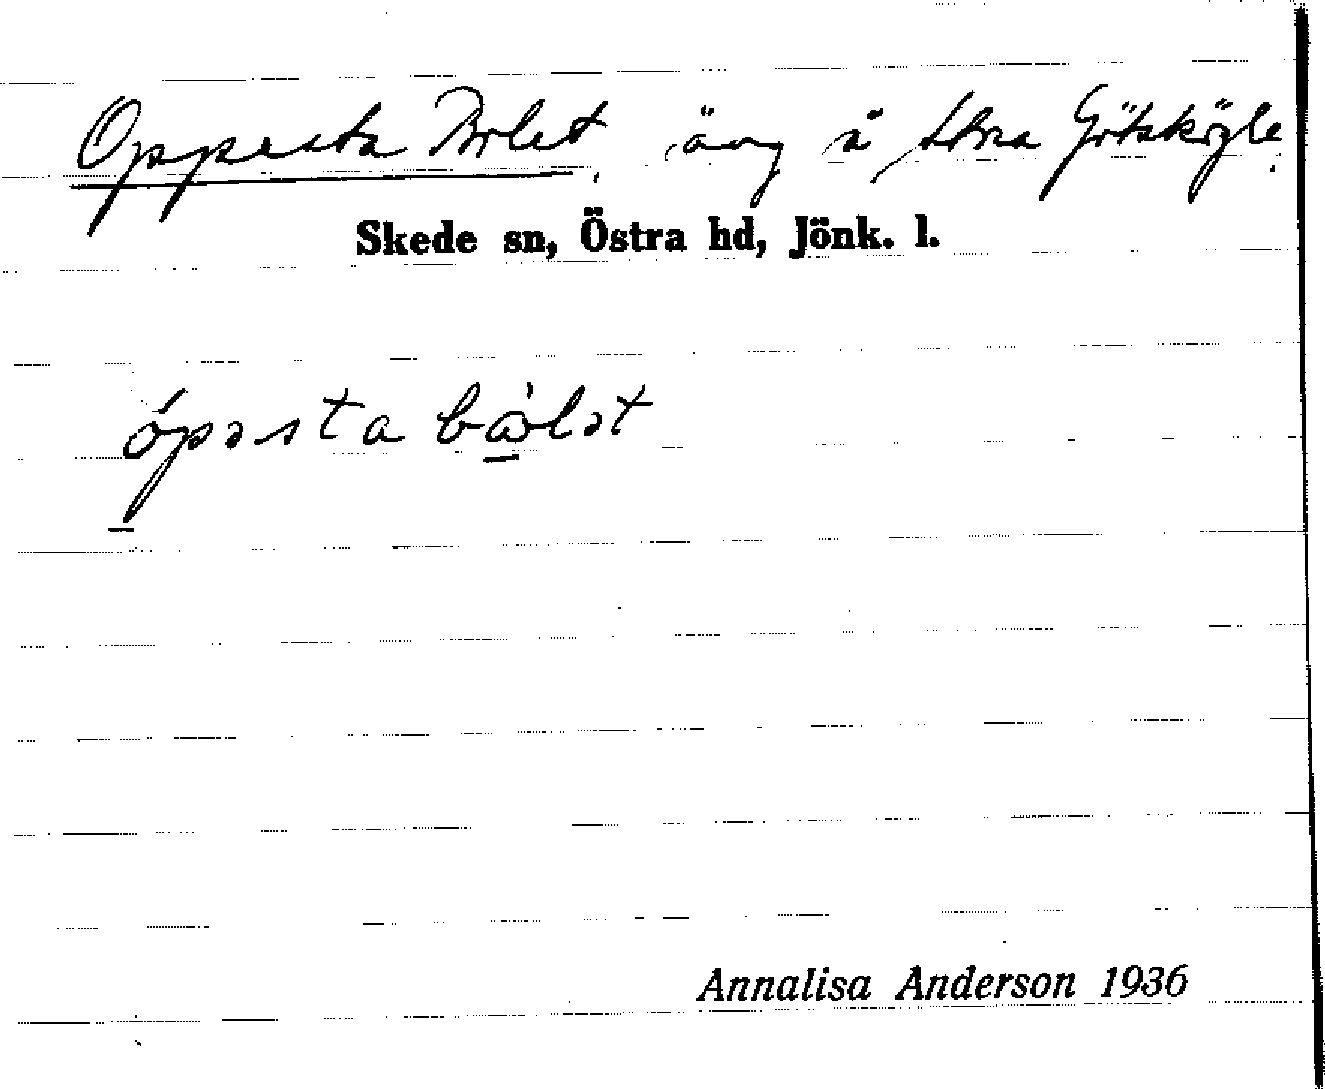 Oppesta Bolet, äng å Stora Götskögle.
Skede sn, Östra hd, Jönk. l.
ópəsta bə̀lət
Annalisa Anderson 1936